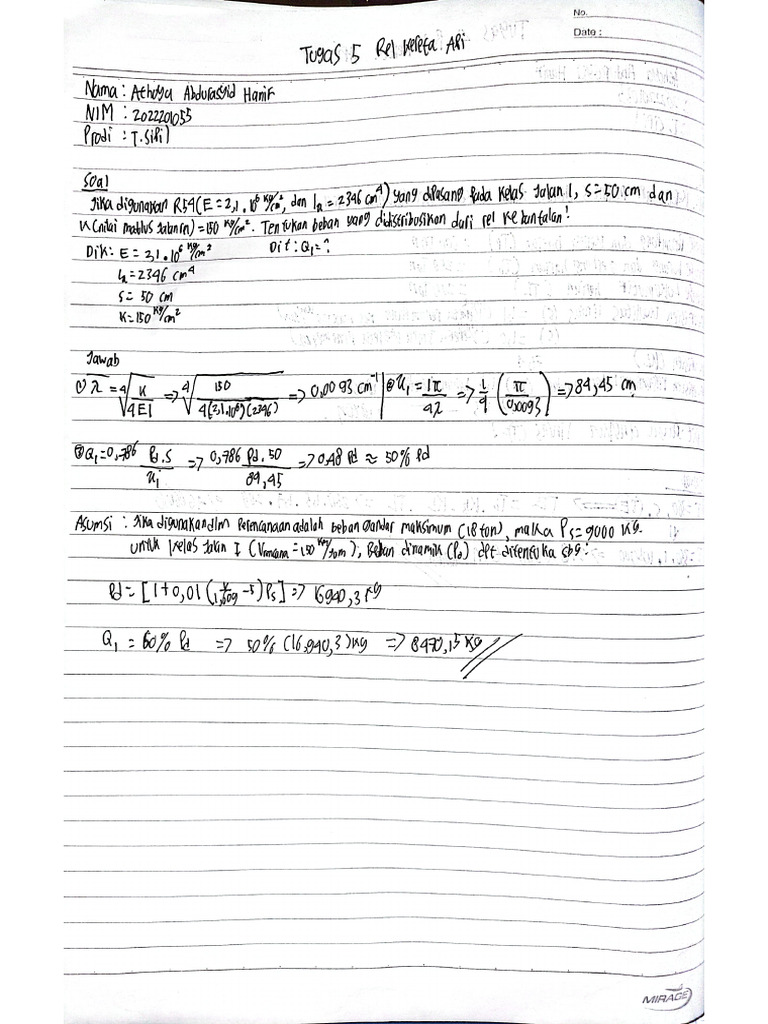 No.
Date :
Tugas 5 Rel Kereta Api
Nama : Athoya Abdurasyid Hanif
NIM : 2022201055
Prodi : T.Sipil
Soal
Jika digunakan R54 (E = 2,1 . 10⁶ kg/cm², dan Iₓ = 2346 cm⁴) yang dipasang pada kelas Jalan 1, S = 50 cm dan
K (nilai modulus jalan rn) = 150 kg/cm². Tentukan beban yang didistribusikan dari rel ke bantalan!
Dik : E = 2,1 . 10⁶ kg/cm² Dit : Q₁ = ?
Iₓ = 2346 cm⁴
S = 50 cm
K = 150 kg/cm²
Jawab
① λ = ⁴√(K/4EI) => ⁴√(150/4(2,1.10⁶)(2346)) => 0,0093 cm⁻¹ | ② X₁ = 1π/4λ => 1/4 (π/0,0093) => 84,45 cm
③ Q₁ = 0,786 Pd.S/X₁ => 0,786 Pd.50/84,45 => 0,48 Pd ≈ 50% Pd
Asumsi : Jika digunakan dlm Perencanaan adalah beban Gandar maksimum (18 ton), maka Ps = 9000 kg.
untuk kelas jalan I (Vrencana = 150 km/jam), Beban dinamik (Pd) dpt ditentuka sbg :
Pd = [1 + 0,01 (V/1,609 - 5) Ps] => 16940,3 kg
Q₁ = 50% Pd => 50% (16.940,3) kg => 8470,15 kg
MIRAGE